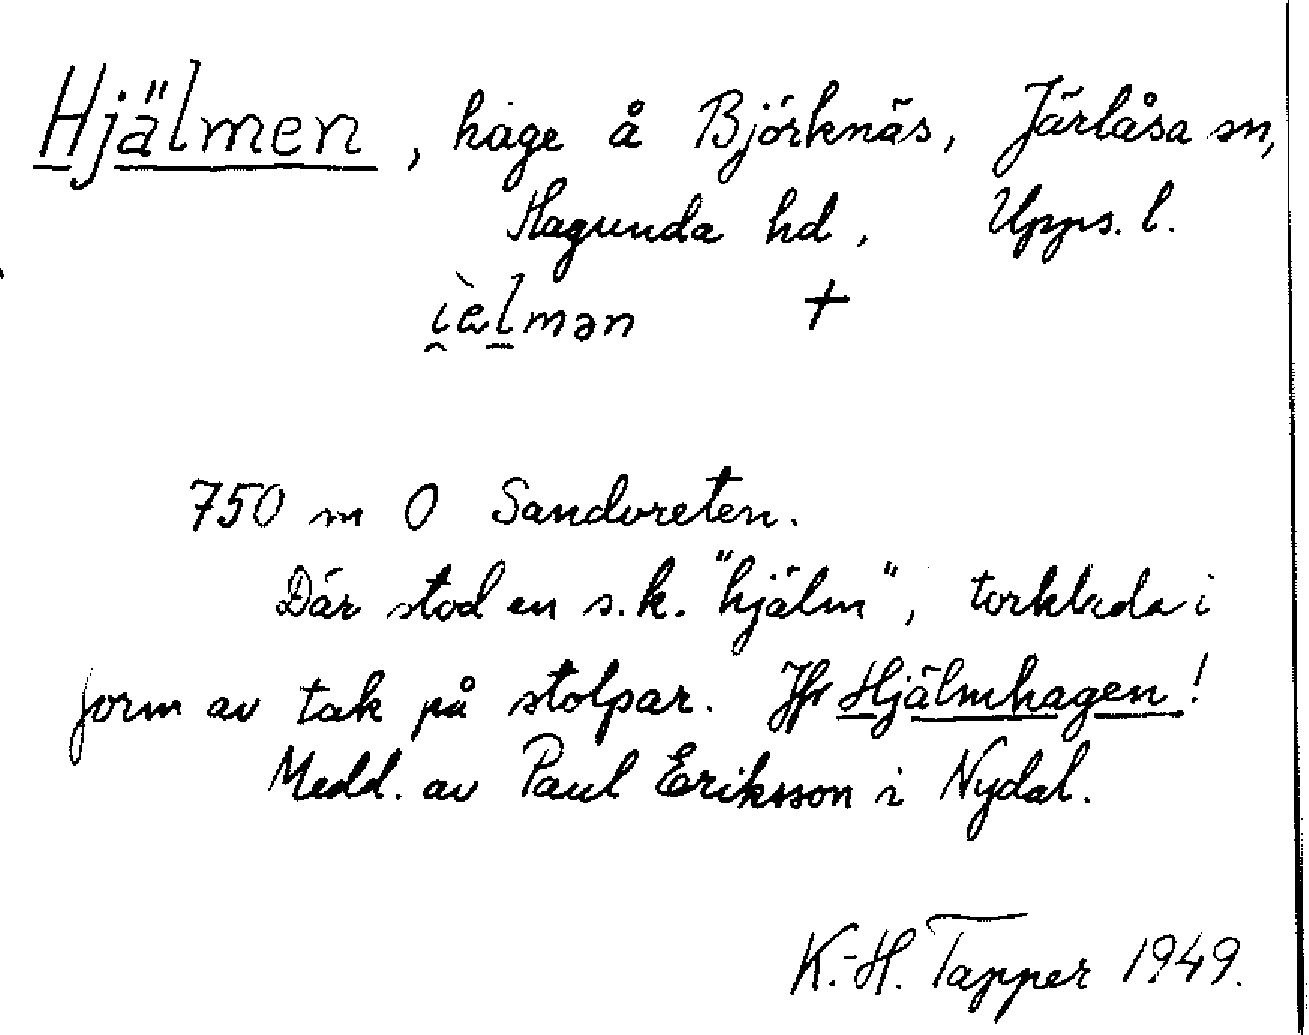 Hjälmen, hage å Björknäs, Järlåsa sn,
Hagunda hd, Upps. l.
i̯èl̲mən +
750 m O Sandvreten.
Där stod en s.k. "hjälm", torklada i
form av tak på stolpar. Jfr Hjälmhagen!
Medd. av Paul Eriksson i Nydal.
K.-H. Tapper 1949.